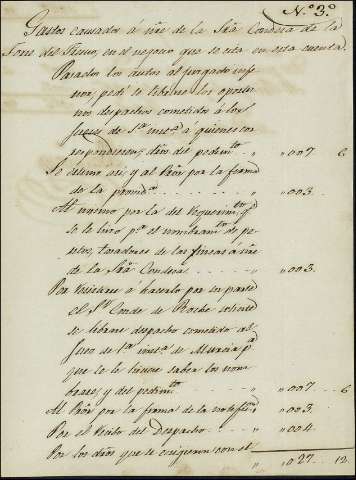 N.º 3.º
Gastos causados á ñre de la Srã Condesa de la
Torre del Fresno, en el negocio que se cita en esta cuenta.
Pasados los autos al juzgado infe-
rior, pedí se librasen los oportu-
nos despachos cometidos á los
Jueces de 1ª inst.ª á quienes cor-
respondiesen; dros del pedim.to " 007. 6
Se estimó así, y al Prõr por la firma
de la provid.ª " 003.
Al mismo por la del Requerim.to q.e
se le hizo p.ª el nombram.to de pe-
ritos, tasadores de las fincas á ñre
de la Srã Condesa " 003.
Por hacerlo por su parte
el S.r Conde de Roche solicité
se librase despacho cometido al
Juez de 1ª inst.ª de Murcia p.ª
que le hiciese saber los nom-
brase; y del pedim.to " 007. 6
Al Prõr por la firma de la notif.on " 003.
Por el Recibo del Despacho " 004.
Por los dros que le exigieron con el
" 027. 12.